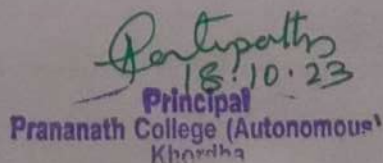 18.10.23
Principal
Prananath College (Autonomous)
Khordha